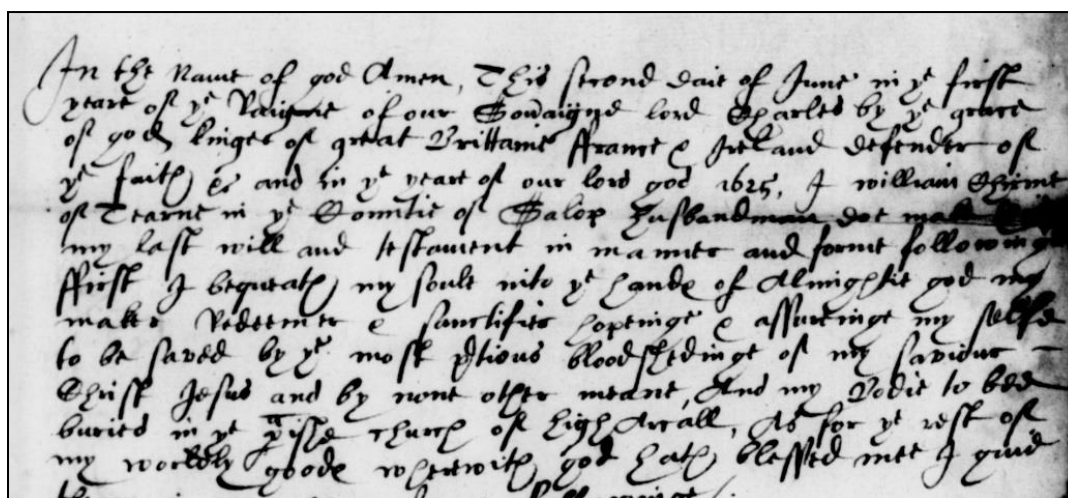 In the Name of god Amen, This second daie of June in ye first
yeare of ye Raigne of our Sovaigne lord Charles by ye grace
of god kinge of great Brittanie ffrance & Ireland defender of
ye faith &c and in ye yeare of our lord god 1625, I william
of Tearne in ye Countie of Salop husbandman doe make this
my last will and testament in manner and forme followinge
ffirst I bequeath my soule into ye hands of Almightie god my
maker Redeemer & sanctifier hopeinge & assureinge my selfe
to be saved by ye most ptious bloodshedinge of my saviour
Christ Jesus and by none other meanes, And my Bodie to bee
buried in ye pishe church of high Arcall, As for ye rest of
my worldly goods wherewith god hath blessed mee I give
followinge